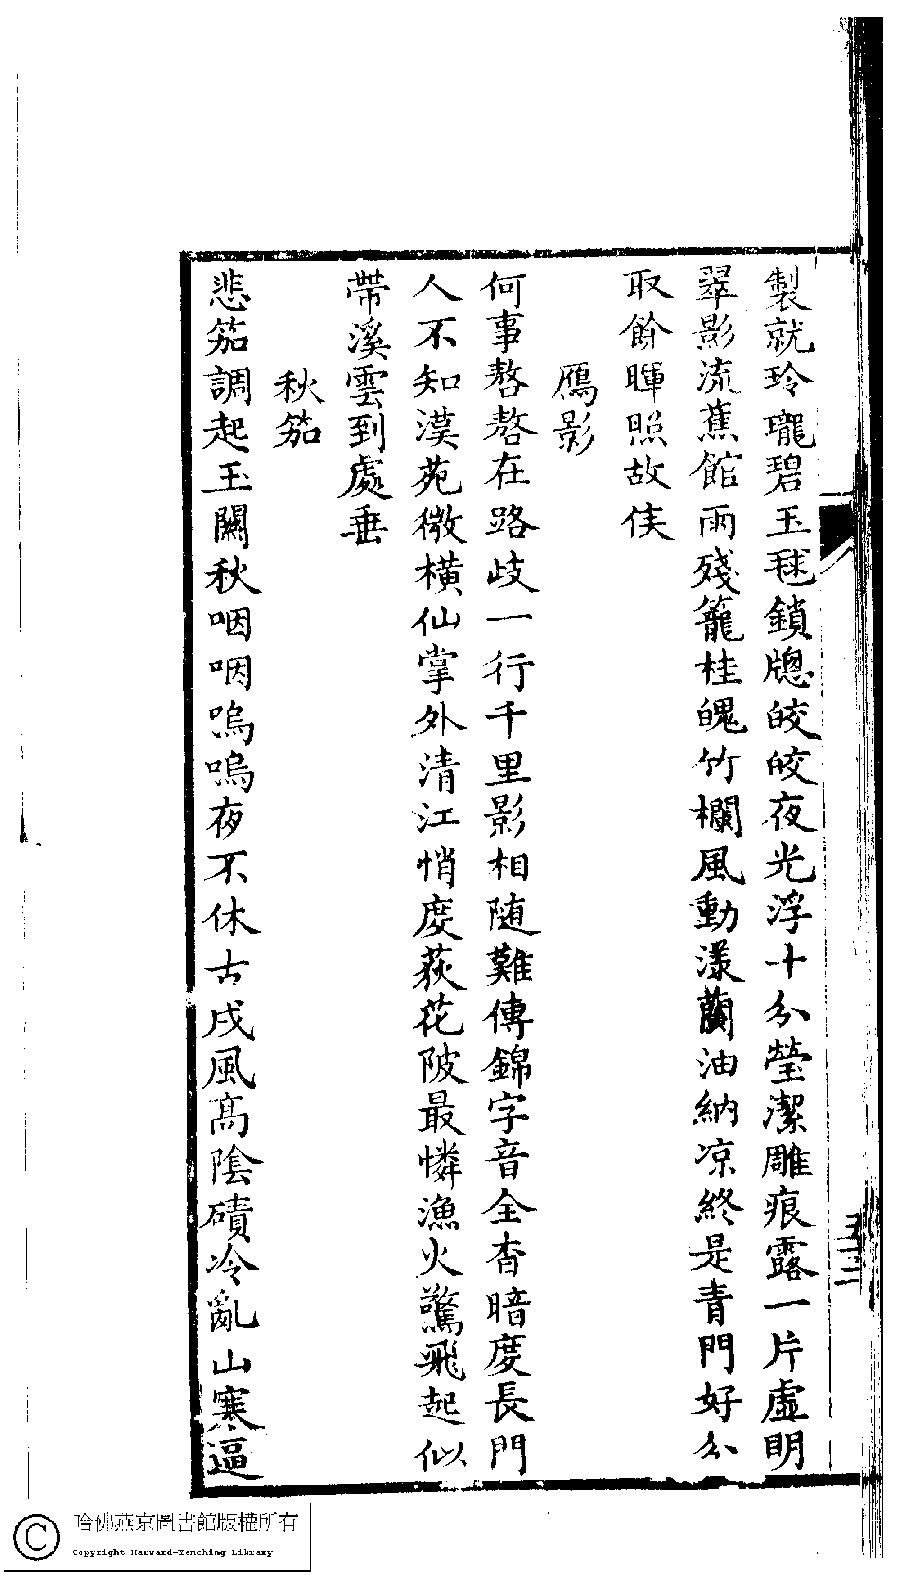 製就玲瓏碧玉毬鎖牕皎皎夜光浮十分瑩潔雕痕露一片虛明
翠影流蕉館雨殘籠桂魄竹欄風動漾蘭油納凉終是青門好分
取餘暉照故侯
鴈影
何事嗸嗸在路歧一行千里影相随難傳錦字音全杳暗度長門
人不知漠苑微橫仙掌外清江悄度荻花陂最憐漁火驚飛起似
帶溪雲到處垂
秋笳
悲笳調起玉關秋咽咽嗚嗚夜不休古戍風高陰磧冷亂山寒逼
五十二
哈佛燕京圖書館版權所有
Copyright Harvard-Yenching Library